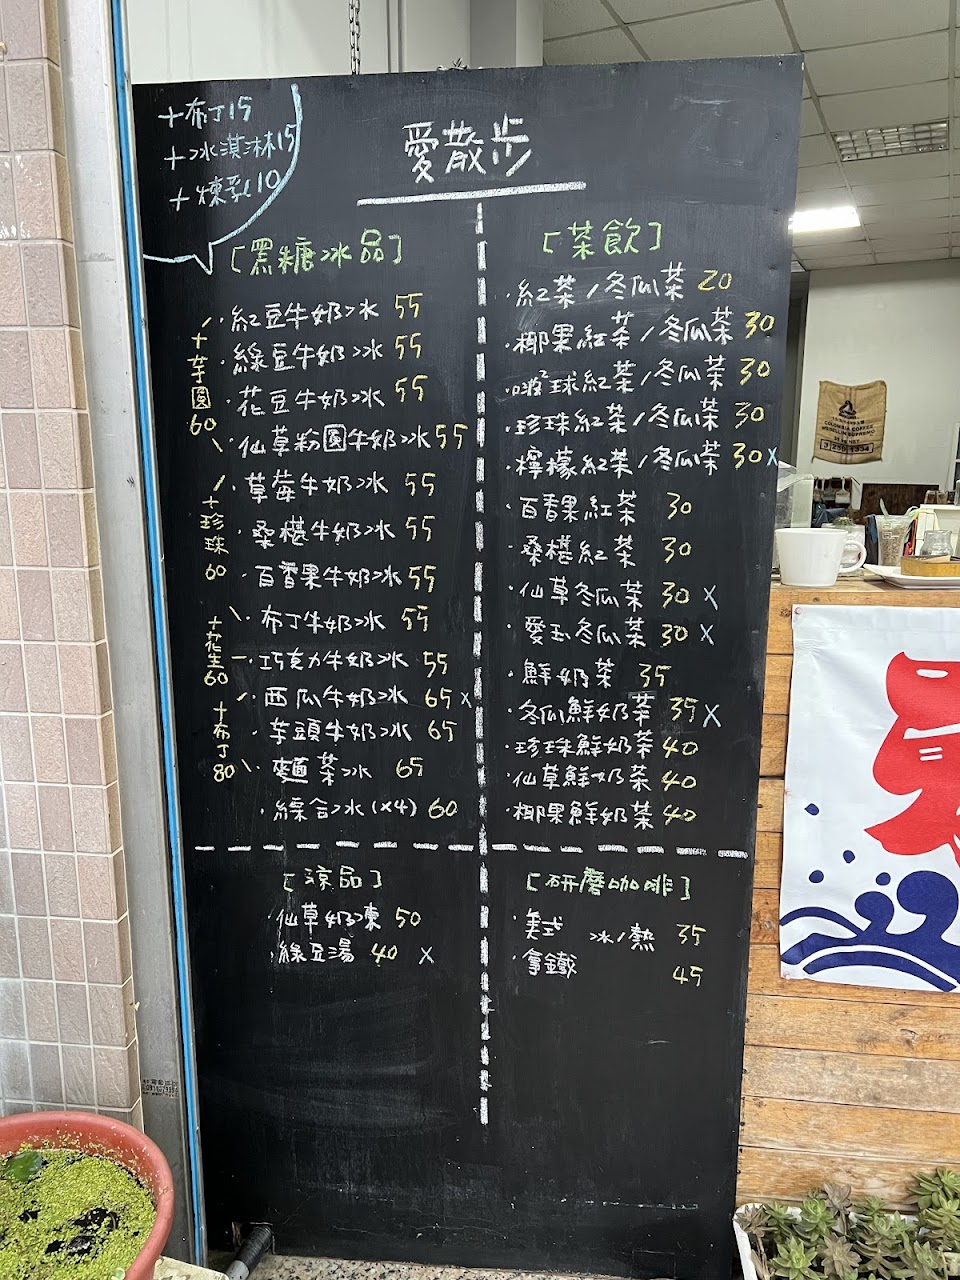 愛散步
+布丁15
+冰淇淋15
+煉乳10
[黑糖冰品]
·紅豆牛奶冰 55
·綠豆牛奶冰 55
·花豆牛奶冰 55
·仙草粉圓牛奶冰 55
·草莓牛奶冰 55
·桑椹牛奶冰 55
·百香果牛奶冰 55
·布丁牛奶冰 55
·巧克力牛奶冰 55
·西瓜牛奶冰 65 x
·芋頭牛奶冰 65
·麵茶冰 65
·綜合冰(x4) 60
+芋圓60
+珍珠60
+花生60
+布丁80
[茶飲]
·紅茶/冬瓜茶 20
·椰果紅茶/冬瓜茶 30
·啵²球紅茶/冬瓜茶 30
·珍珠紅茶/冬瓜茶 30
·檸檬紅茶/冬瓜茶 30 x
·百香果紅茶 30
·桑椹紅茶 30
·仙草冬瓜茶 30 x
·愛玉冬瓜茶 30 x
·鮮奶茶 35
·冬瓜鮮奶茶 35 x
·珍珠鮮奶茶 40
·仙草鮮奶茶 40
·椰果鮮奶茶 40
[涼品]
·仙草奶凍 50
·綠豆湯 40 x
[研磨咖啡]
·美式 冰/熱 35
·拿鐵 45
COLOMBIA COFFEE
MEDELLIN SUPREMO